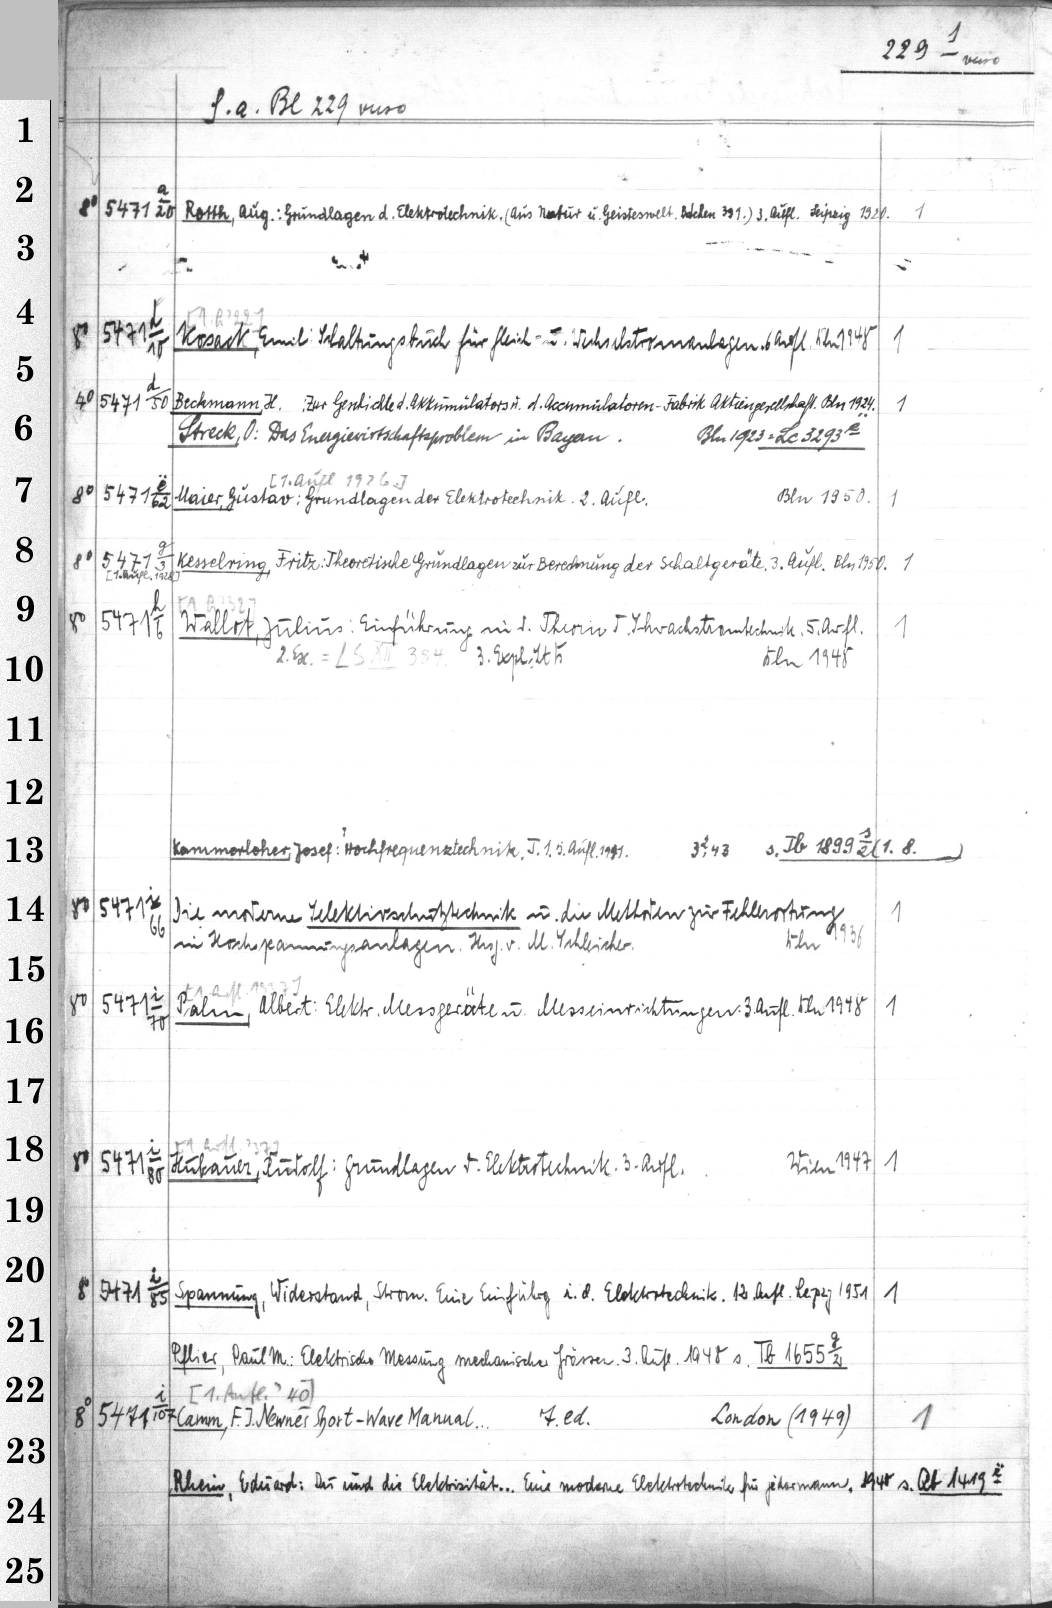 229 1 verso
S. a. Bl 229 verso
1
2
8° 5471 a/20 Rotth, Aug.: Grundlagen d. Elektrotechnik. (Aus Natur u. Geisteswelt. Bdchen 391.) 3. Aufl. Leipzig 1920. 1
3
4
8° 5471 d/10 Kosack, Emil: Schaltungsbuch für Gleich- u. Wechselstromanlagen. 6. Aufl. Bln 1948 1
5
4° 5471 d/50 Beckmann, H. Zur Geschichte d. Akkumulators u. d. Accumulatoren-Fabrik Aktiengesellschaft. Bln 1924. 1
6 Streck, O: Das Energiewirtschaftsproblem in Bayern. Bln 1923 = Lc 3293
[1. Aufl 1926.]
7 8° 5471 e/62 Maier, Gustav: Grundlagen der Elektrotechnik. 2. Aufl. Bln 1950. 1
8 8° 5471 g/3 Kesselring, Fritz: Theoretische Grundlagen zur Berechnung der Schaltgeräte. 3. Aufl. Bln 1950. 1
[1. Aufl. 1928]
9 [1. A. '32]
8° 5471 h/6 Wallot, Julius: Einführung in d. Theorie d. Schwachstromtechnik. 5. Aufl. 1
10 2. Ex. = LS XII 354. 3. Expl. Bln 1948
11
12
13 Kammerloher, Josef: Hochfrequenztechnik, T. 1. 5. Aufl. 1941. s. Tb 1899 s/2 (1. 8.
14 8° 5471 i/66 Die moderne Selektivschutztechnik u. die Methoden zur Fehlerortung 1
in Hochspannungsanlagen. Hrsg. v. M. Schleicher. Bln 1936
15 [1. Aufl. 1937]
8° 5471 i/70 Palm, Albert: Elektr. Messgeräte u. Messeinrichtungen. 3. Aufl. Bln 1948 1
16
17
18 [1. Aufl. '37]
8° 5471 i/80 Rudolf: Grundlagen d. Elektrotechnik. 3. Aufl. Wien 1947 1
19
20 8° 5471 i/85 Spannung, Widerstand, Strom. Eine Einführg i. d. Elektrotechnik. 12. Aufl. Leipzg 1951 1
21 Pflier, Paul M.: Elektrische Messung mechanischer Grössen. 3. Aufl. 1948 s. Tb 1655 g/2
22 [1. Aufl. '40]
8° 5471 i/107 Camm, F. J. Newnes Short-Wave Manual... 7. ed. London (1949) 1
23
Rhein, Eduard: Du und die Elektrizität... Eine moderne Elektrotechnik für jedermann. 1948 s. Qb 1419
24
25